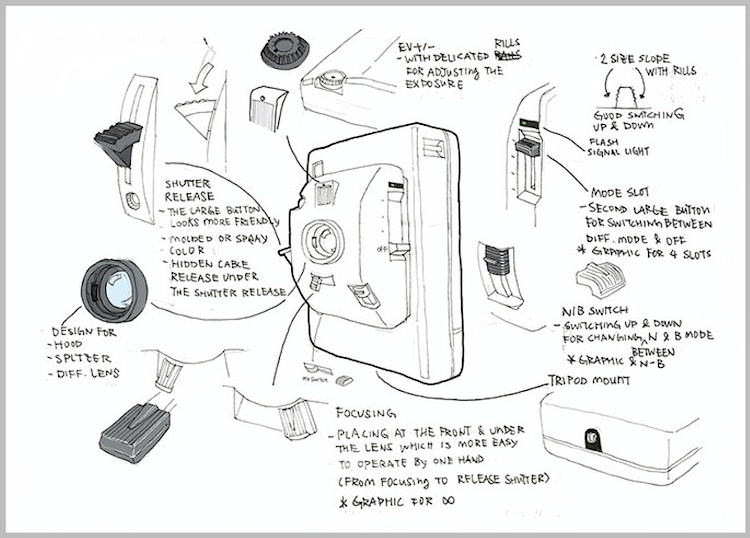 EV+/-
- WITH DELICATED RILLS
FOR ADJUSTING THE
EXPOSURE
2 SIZE SLOPE
WITH RILLS
GOOD SWITCHING
UP & DOWN
FLASH
SIGNAL LIGHT
MODE SLOT
- SECOND LARGE BUTTON
FOR SWITCHING BETWEEN
DIFF. MODE & OFF
* GRAPHIC FOR 4 SLOTS
SHUTTER
RELEASE
- THE LARGE BUTTON
LOOKS MORE FRIENDLY
- MOLDED OR SPRAY
COLOR
- HIDDEN CABLE
RELEASE UNDER
THE SHUTTER RELEASE
OFF
N/B SWITCH
- SWITCHING UP & DOWN
FOR CHANGING BETWEEN N & B MODE
* GRAPHIC N-B
DESIGN FOR
- HOOD
- SPLTZER
- DIFF. LENS
TRIPOD MOUNT
SWITCH
FOCUSING
- PLACING AT THE FRONT & UNDER
THE LENS WHICH IS MORE EASY
TO OPERATE BY ONE HAND
(FROM FOCUSING TO RELEASE SHUTTER)
* GRAPHIC FOR ∞